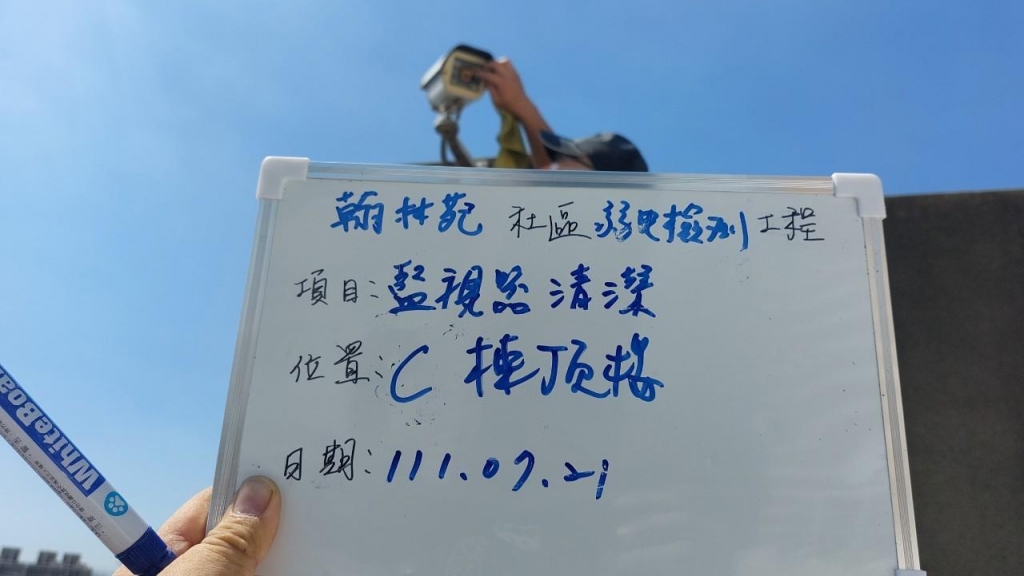 翰林苑 社區 弱電檢測 工程
項目:監視器清潔
位置:C 棟頂樓
日期:111.07.21
WhiteBoa